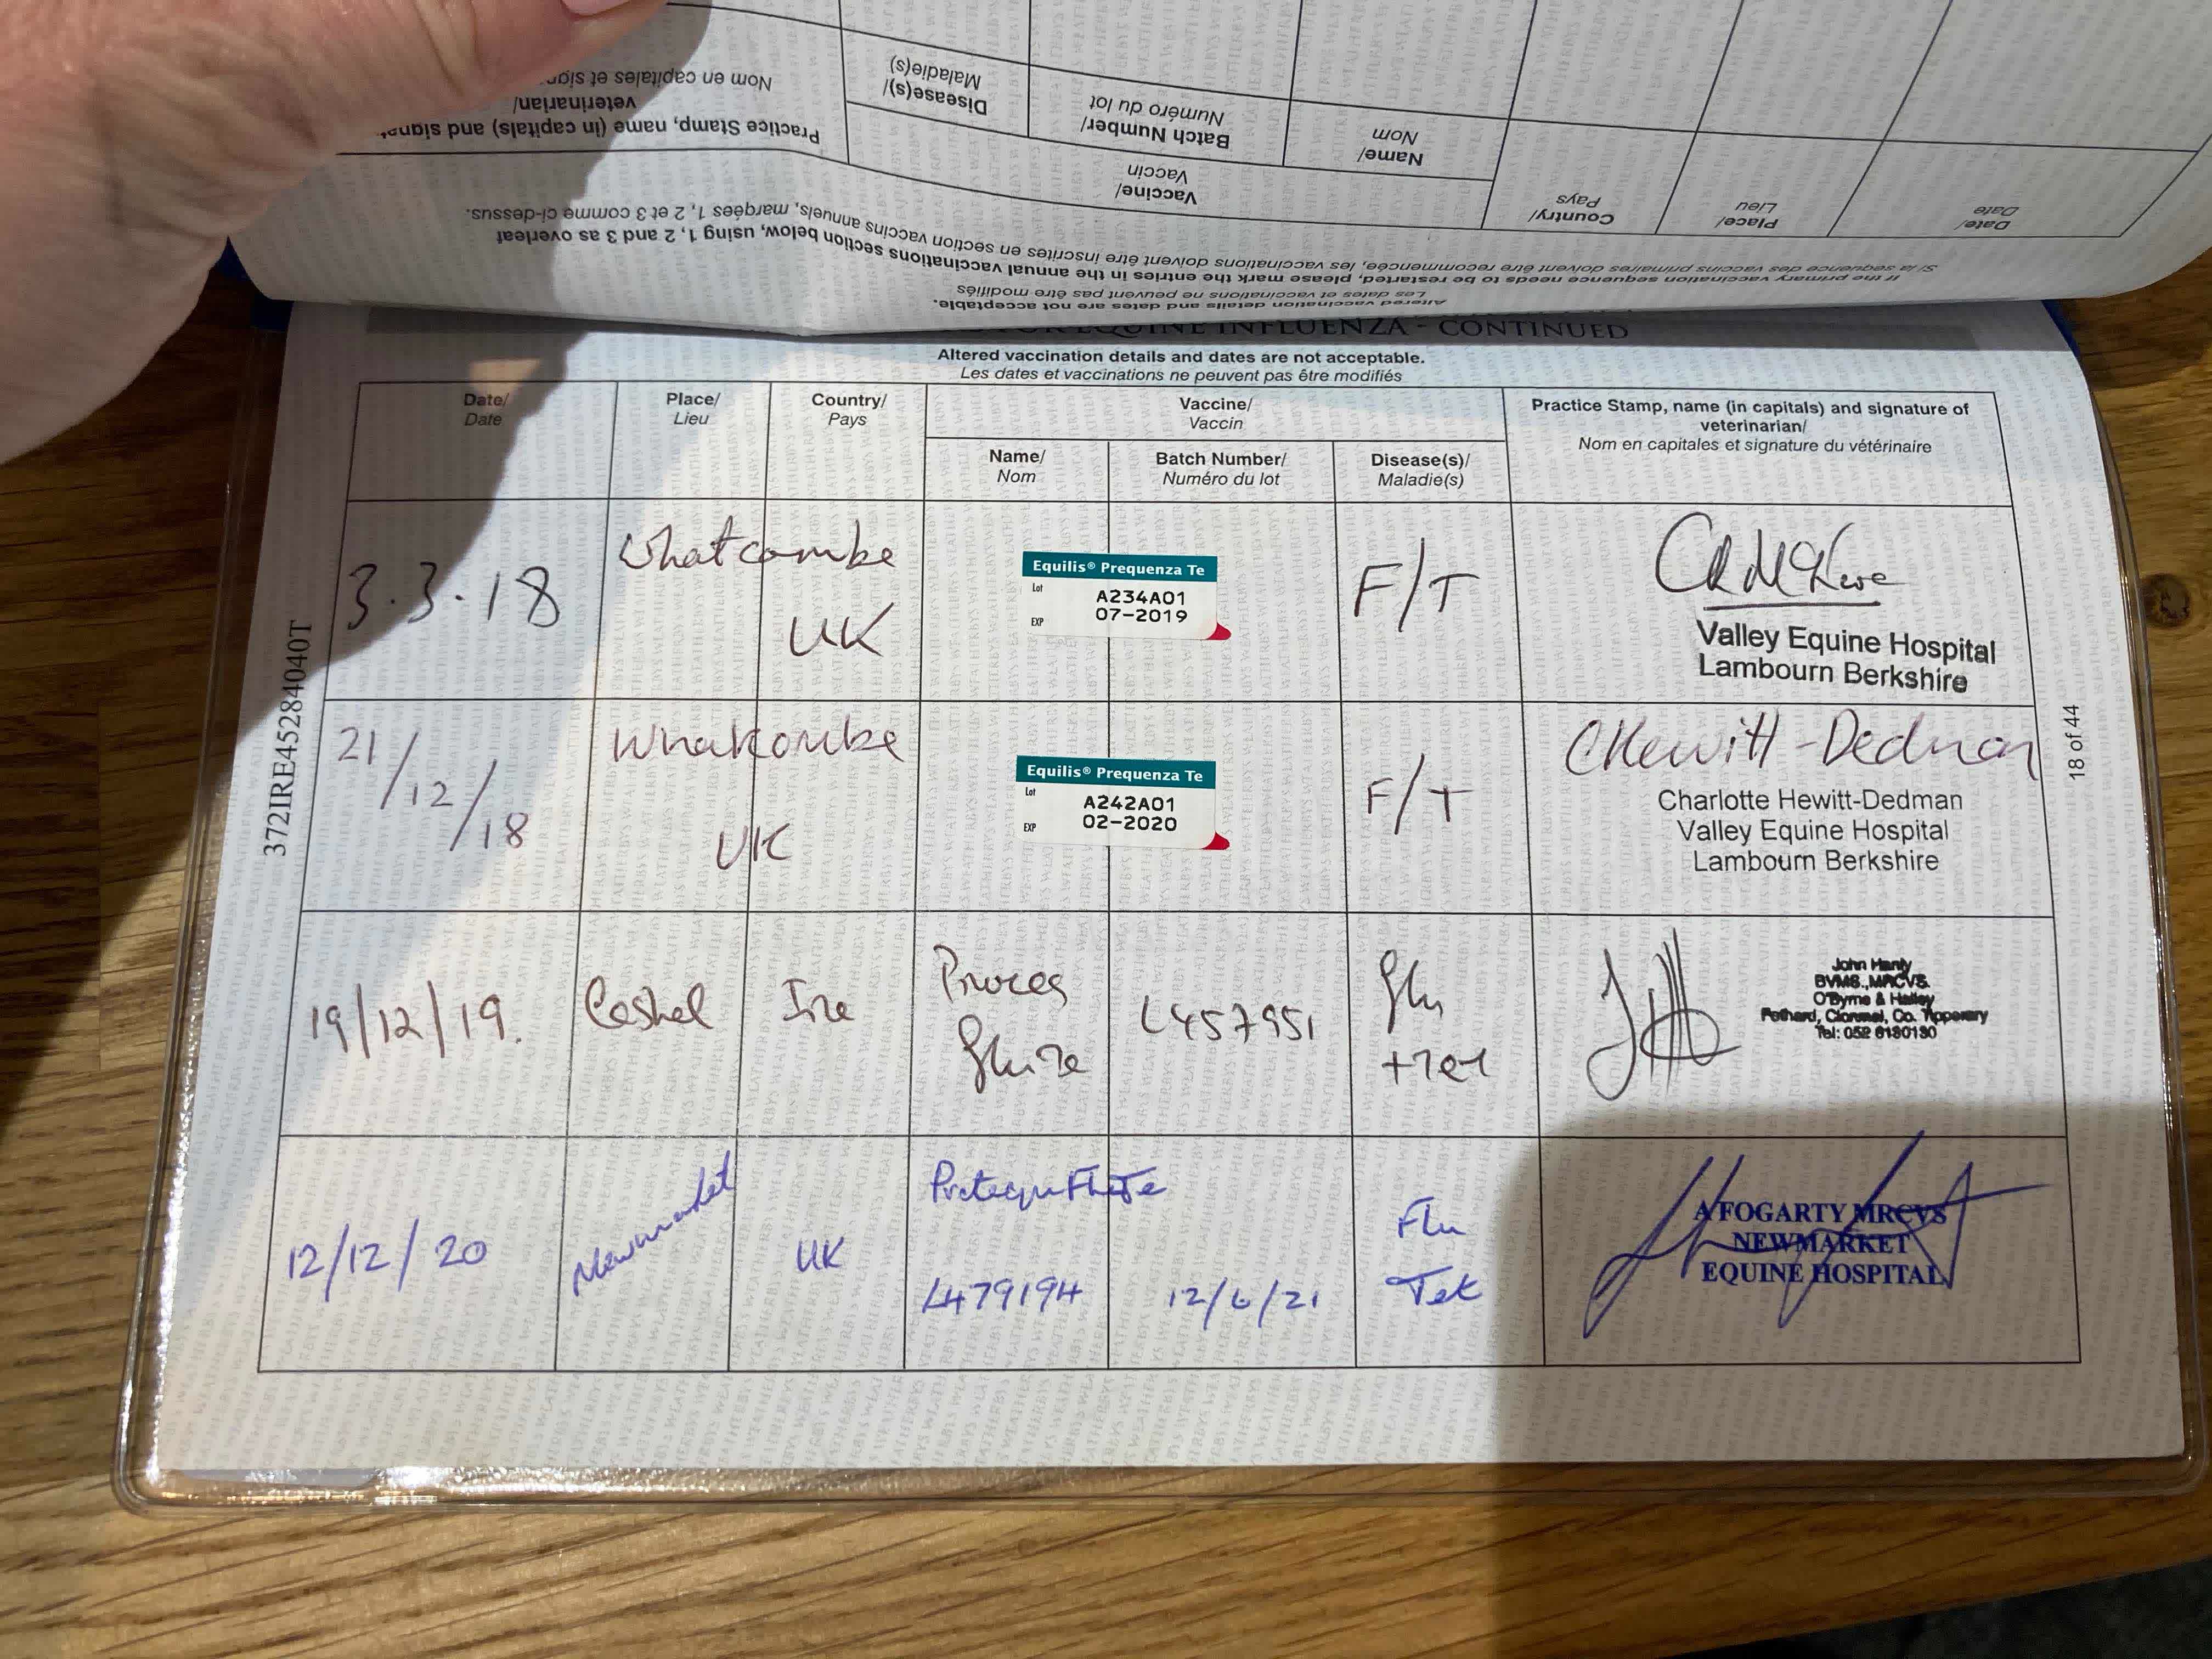 Practice Stamp, name (in capitals) and
veterinarian/
Nom en capitales et
Disease(s)/
Maladie(s)
Vaccine/
Vaccin
Batch Number/
Numéro du lot
Name/
Nom
Country/
Pays
Place/
Lieu
Date/
Date
If the primary vaccination sequence needs to be restarted, please mark the entries in the annual vaccinations section below, using 1, 2 and 3 as overleaf
Si la séquence des vaccins primaires doit être recommencée, les vaccinations doivent être inscrites en section vaccins annuels, marquées 1, 2 et 3 comme ci-dessus.
Altered vaccination details and dates are not acceptable.
Les dates et vaccinations ne peuvent pas être modifiés
EQUINE INFLUENZA - CONTINUED
Altered vaccination details and dates are not acceptable.
Les dates et vaccinations ne peuvent pas être modifiés
Date/
Date
Place/
Lieu
Country/
Pays
Vaccine/
Vaccin
Name/
Nom
Batch Number/
Numéro du lot
Disease(s)/
Maladie(s)
Practice Stamp, name (in capitals) and signature of
veterinarian/
Nom en capitales et signature du vétérinaire
3.3.18
Whatcombe
UK
Equilis® Prequenza Te
Lot A234A01
EXP 07-2019
F/T
Valley Equine Hospital
Lambourn Berkshire
21/12/18
Whatcombe
UK
Equilis® Prequenza Te
Lot A242A01
EXP 02-2020
F/T
CHewitt-Dedman
Charlotte Hewitt-Dedman
Valley Equine Hospital
Lambourn Berkshire
19/12/19.
Cashel
Ire
L457951
Flu
+Tet
John Hanly
BVMS., MRCVS.
O'Byrne & Halley
Fethard, Clonmel, Co. Tipperary
Tel: 052 6130130
12/12/20
Newmarket
UK
Protequ FluTe
L479194
12/6/21
Flu
Tet
A FOGARTY MRCVS
NEWMARKET
EQUINE HOSPITAL
372IRE45284040T
18 of 44